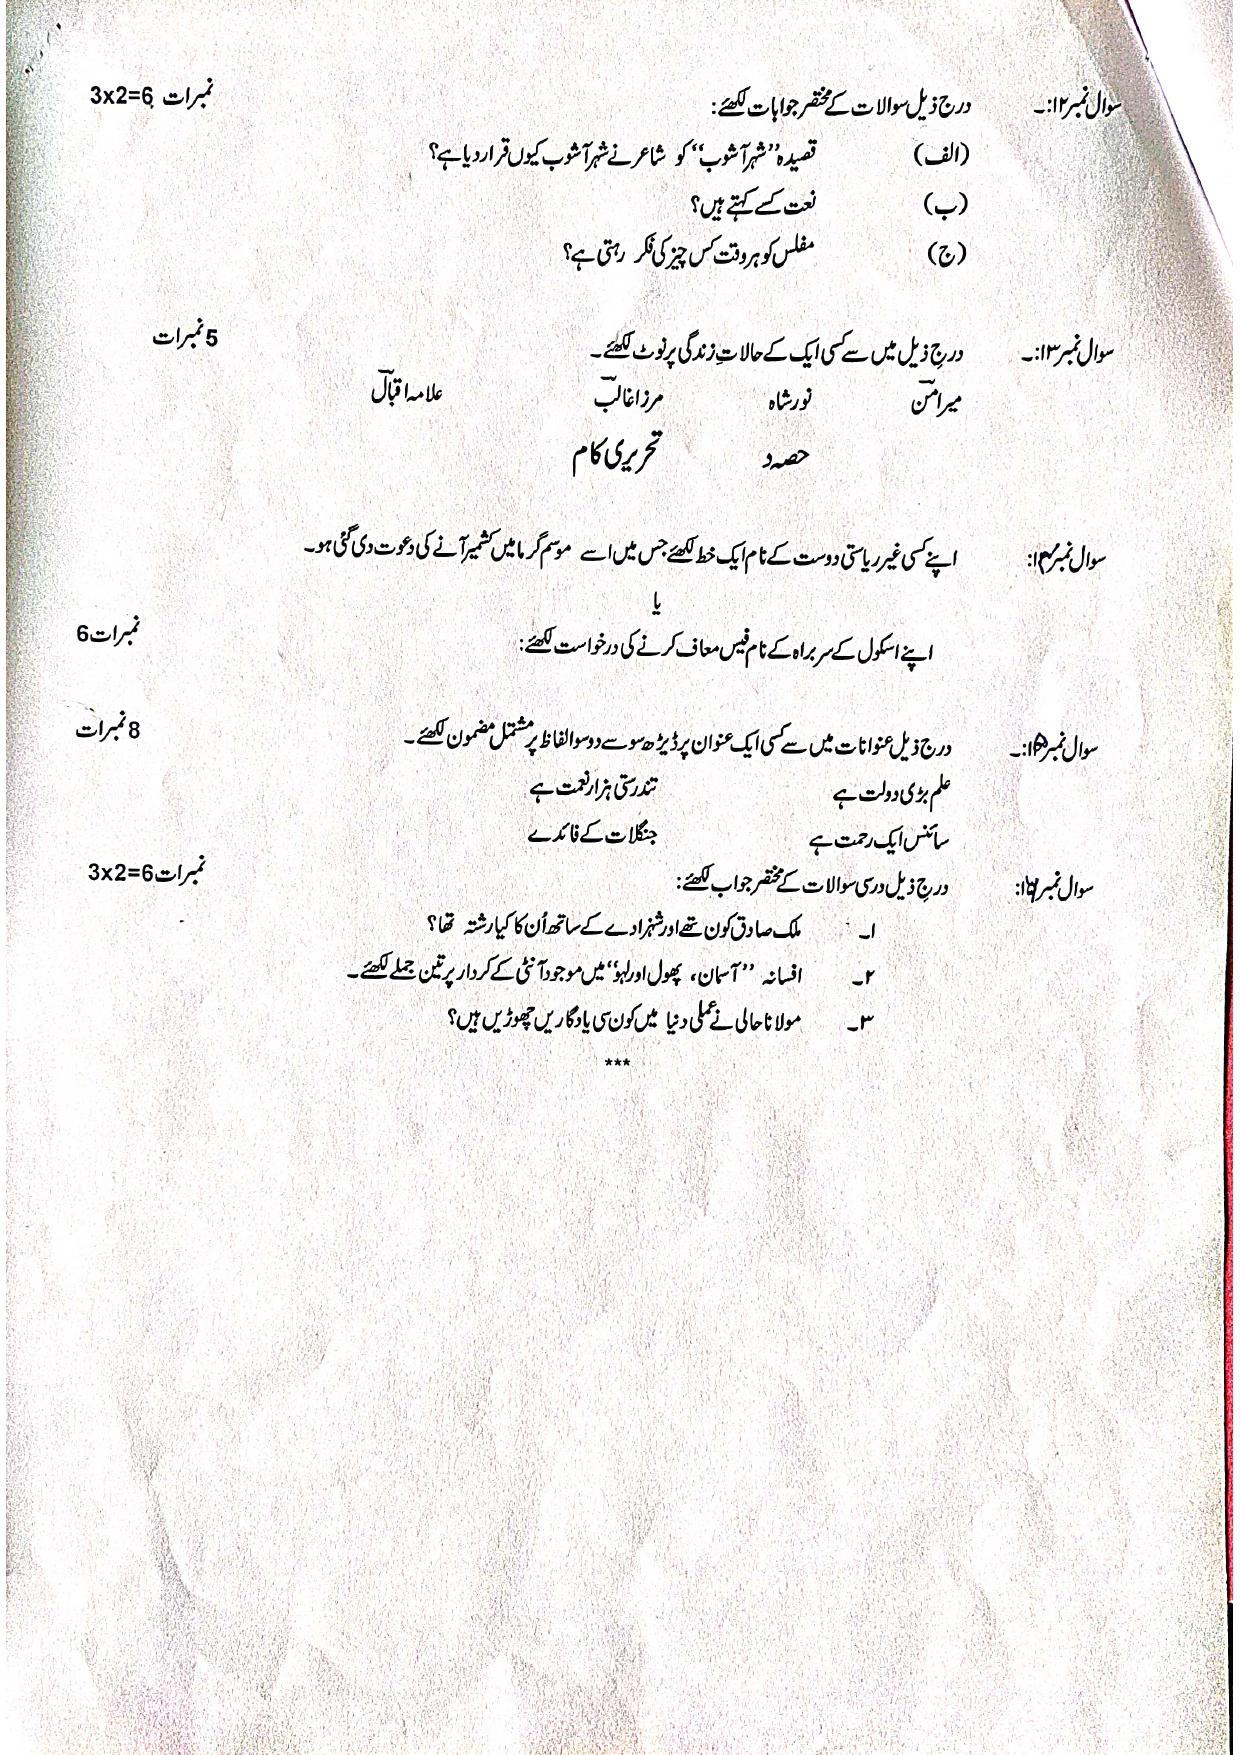 سوال نمبر ۱۲:۔ درج ذیل سوالات کے مختصر جوابات لکھئے: نمبرات 3x2=6
(الف) قصیدہ ’’شہر آشوب‘‘ کو شاعر نے شہر آشوب کیوں قرار دیا ہے؟
(ب) نعت کسے کہتے ہیں؟
(ج) مفلس کو ہر وقت کس چیز کی فکر رہتی ہے؟
سوال نمبر ۱۳:۔ درج ذیل میں سے کسی ایک کے حالاتِ زندگی پر نوٹ لکھئے۔ 5 نمبرات
میر امنؔ نور شاہ مرزا غالبؔ علامہ اقبالؔ
حصہ د تحریری کام
سوال نمبر ۱۴: اپنے کسی غیر ریاستی دوست کے نام ایک خط لکھئے جس میں اسے موسم گرما میں کشمیر آنے کی دعوت دی گئی ہو۔
یا
اپنے اسکول کے سربراہ کے نام فیس معاف کرنے کی درخواست لکھئے: نمبرات 6
سوال نمبر ۱۵:۔ درج ذیل عنوانات میں سے کسی ایک عنوان پر ڈیڑھ سو سے دو سو الفاظ پر مشتمل مضمون لکھئے۔ 8 نمبرات
علم بڑی دولت ہے تندرستی ہزار نعمت ہے
سائنس ایک رحمت ہے جنگلات کے فائدے
سوال نمبر ۱۶: درج ذیل درسی سوالات کے مختصر جواب لکھئے: نمبرات 3x2=6
۱۔ ملک صادق کون تھے اور شہزادے کے ساتھ اُن کا کیا رشتہ تھا؟
۲۔ افسانہ ’’آسمان، پھول اور لہو‘‘ میں موجود آنٹی کے کردار پر تین جملے لکھئے۔
۳۔ مولانا حالی نے عملی دنیا میں کون سی یادگاریں چھوڑیں ہیں؟
***